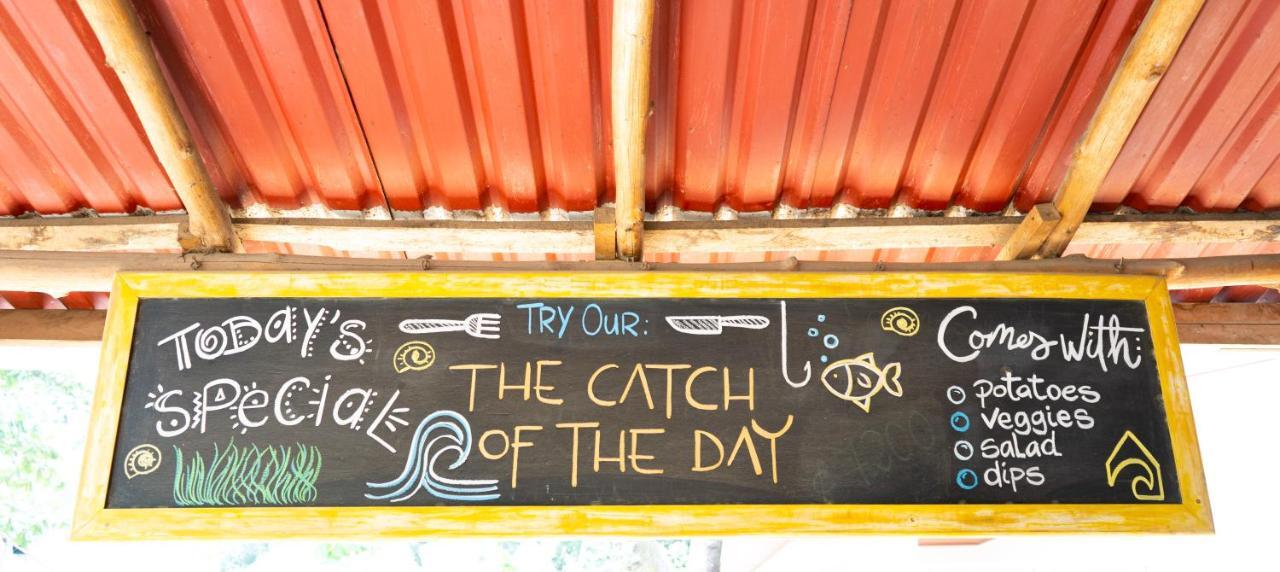 TODAY'S
SPECIAL
TRY OUR:
THE CATCH
OF THE DAY
Comes with:
potatoes
veggies
salad
dips